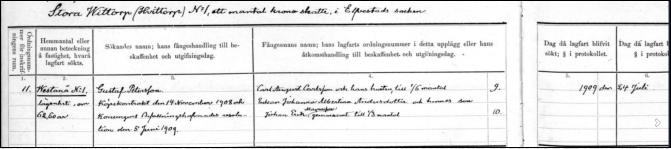 Stora Wittorp (Hvittorp) No 1, ett mantal krono skatte, i Elfvestads socken
Ordningsnummer för inskrifningens rum.
Hemmantal eller annan beteckning å fastighet, hvarå lagfart sökts.
Sökandes namn; hans fångeshandling till beskaffenhet och utgifningsdag.
Fångsmans namn; hans lagfarts ordningsnummer i detta upplägg eller hans åtkomsthandling till beskaffenhet och utgifningsdag.
Dag då lagfart blifvit sökt; § i protokollet.
Dag då lagfart
§ i protokollet
1. 2. 3. 4. 5. 6.
11. Westanå No 1, Gustaf Petersson. Carl August Carlsson och hans hustru, till 1/6 mantal 9. 1909 den 24 Juli
lägenhet, om Köpekontrakt den 14 November 1908 och Enkan Johanna Albertina Andersdotter och hennes son
62,60 ar Konungens Befallningshafvandes resolu- Johan Erik Magnusson gemensamt till 1/3 mantal 10.
tion den 5 Juni 1909.